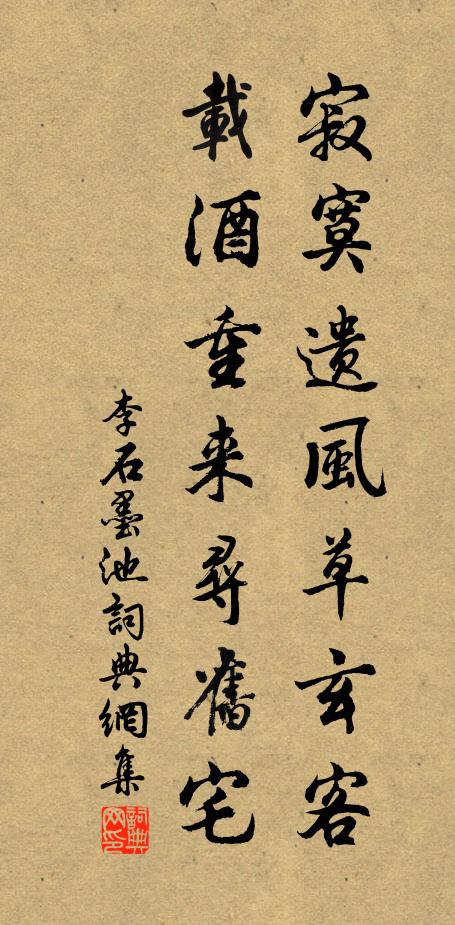 寂寞遺風草玄客
載酒重来尋舊宅
李石墨池詞典網集
詞典网印